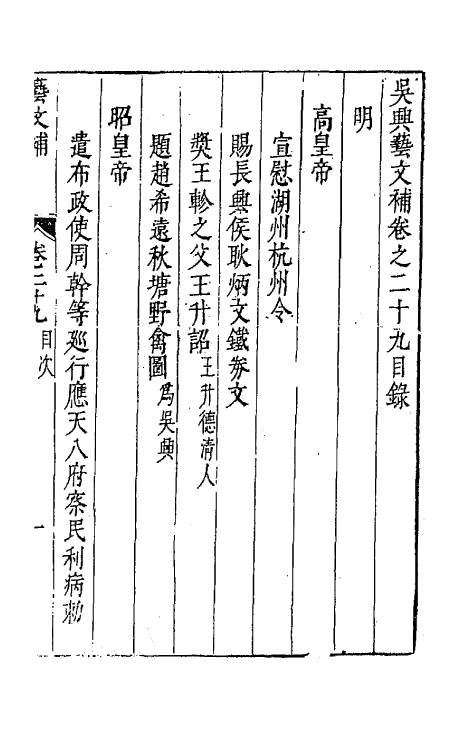 吳興藝文補卷之二十九目錄
明
高皇帝
宣慰湖州杭州令
賜長興侯耿炳文鐵券文
奬王軫之父王升詔王升德清人
題趙希遠秋塘野禽圖爲吳興
昭皇帝
遣布政使周幹等廵行應天八府察民利病勅
藝文補 卷二十九目次 一